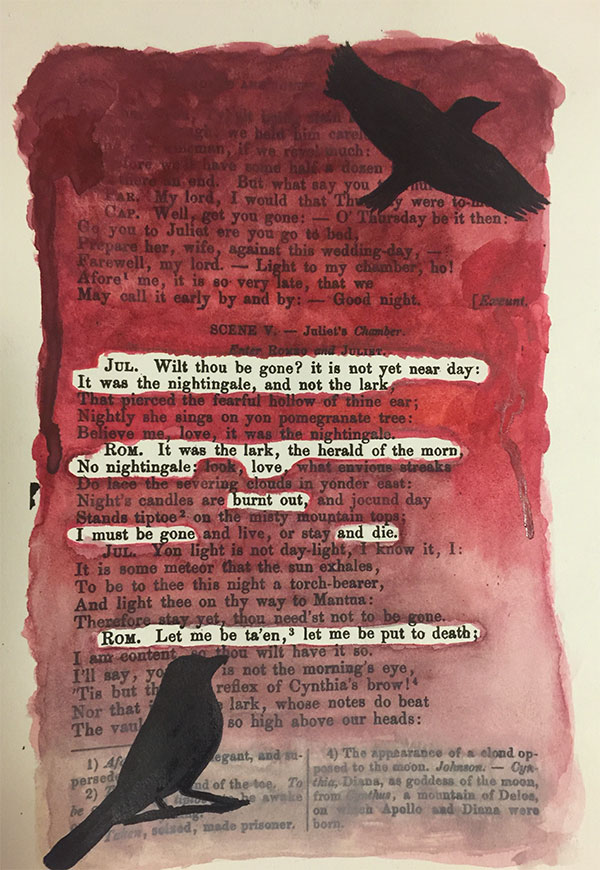 we held him
if we revel much:
have some half a dozen
end. But what say you
PAR. My lord, I would that were
CAP. Well, get you gone: — O' Thursday be it then:
Go you to Juliet ere you go to bed,
Prepare her, wife, against this wedding-day, —
Farewell, my lord. — Light to my chamber, ho!
Afore¹ me, it is so very late, that we
May call it early by and by: — Good night. [Exeunt.
SCENE V. — Juliet's Chamber.
Enter ROMEO and JULIET.
JUL. Wilt thou be gone? it is not yet near day:
It was the nightingale, and not the lark,
That pierced the fearful hollow of thine ear;
Nightly she sings on yon pomegranate tree:
Believe me, love, it was the nightingale.
ROM. It was the lark, the herald of the morn,
No nightingale: look, love, what envious streaks
Do lace the severing clouds in yonder east:
Night's candles are burnt out, and jocund day
Stands tiptoe² on the misty mountain tops;
I must be gone and live, or stay and die.
JUL. Yon light is not day-light, I know it, I:
It is some meteor that the sun exhales,
To be to thee this night a torch-bearer,
And light thee on thy way to Mantua:
Therefore stay yet, thou need'st not to be gone.
ROM. Let me be ta'en,³ let me be put to death;
I am content, so thou wilt have it so.
I'll say, is not the morning's eye,
'Tis but reflex of Cynthia's brow!⁴
Nor that lark, whose notes do beat
The so high above our heads:
1) and su-
2) of the toe. To
be awake
Taken, seized, made prisoner.
4) The appearance of a cloud op-
posed to the moon. Johnson. — Cyn-
thia, Diana, as goddess of the moon,
from Cynthus, a mountain of Delos,
on which Apollo and Diana were
born.